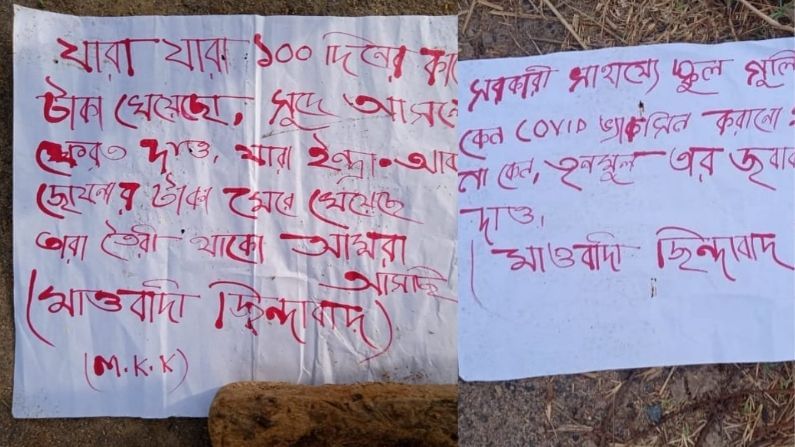 যারা যারা ১০০ দিনের
টাকা খেয়েছো, সুদে
ফেরত দাও, যারা ইন্দ্রা-আব
যোযনার টাকা মেরে খেয়েছে
তারা তৈরী থাকো আমরা
আসছি
(মাওবাদি জিন্দাবাদ)
(M.K.K)
সরকারী সাহায্যে স্কুল গুলি
কেন COVID ভ্যাকসিন করানো
না কেন, তৃনমূল এর জবাব
দাও,
(মাওবাদি জিন্দাবাদ